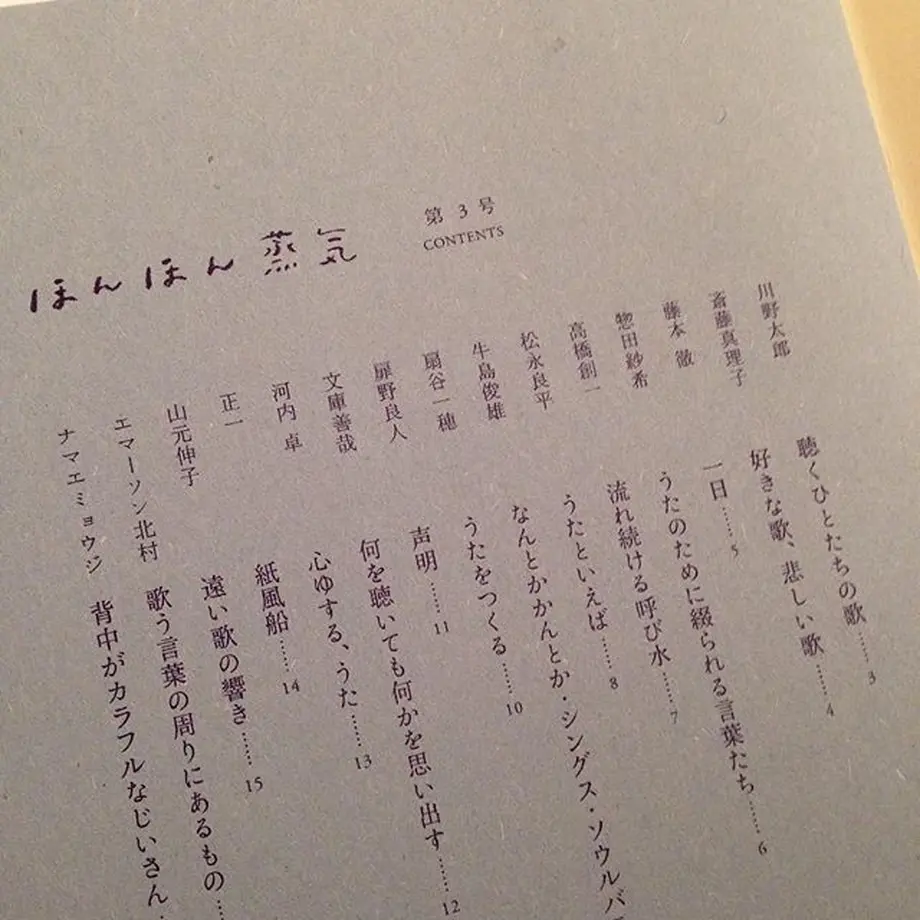 ほんほん蒸気
第3号
CONTENTS
川野太郎 聴くひとたちの歌……3
斎藤真理子 好きな歌、悲しい歌……4
藤本 徹 一日……5
惣田紗希 うたのために綴られる言葉たち……6
高橋創一 流れ続ける呼び水……7
松永良平 うたといえば……8
牛島俊雄 なんとかかんとか・シングス・ソウルバ
扇谷一穂 うたをつくる……10
扉野良人 声明……11
文庫善哉 何を聴いても何かを思い出す……12
河内 卓 心ゆする、うた……13
正一 紙風船……14
山元伸子 遠い歌の響き……15
エマーソン北村 歌う言葉の周りにあるもの…
ナマエミョウジ 背中がカラフルなじいさん…